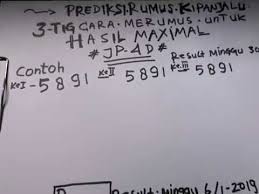 PREDIKSI.RUMUS.KIPANJALU
3-TIG CARA.MERUMUS.UNTUK
HASIL MAXIMAL
#JP-4D#
Result Minggu 30
Contoh
KeI-5891 KeII 5891 Ke.III 5891
Result:Minggu 6/1-2019